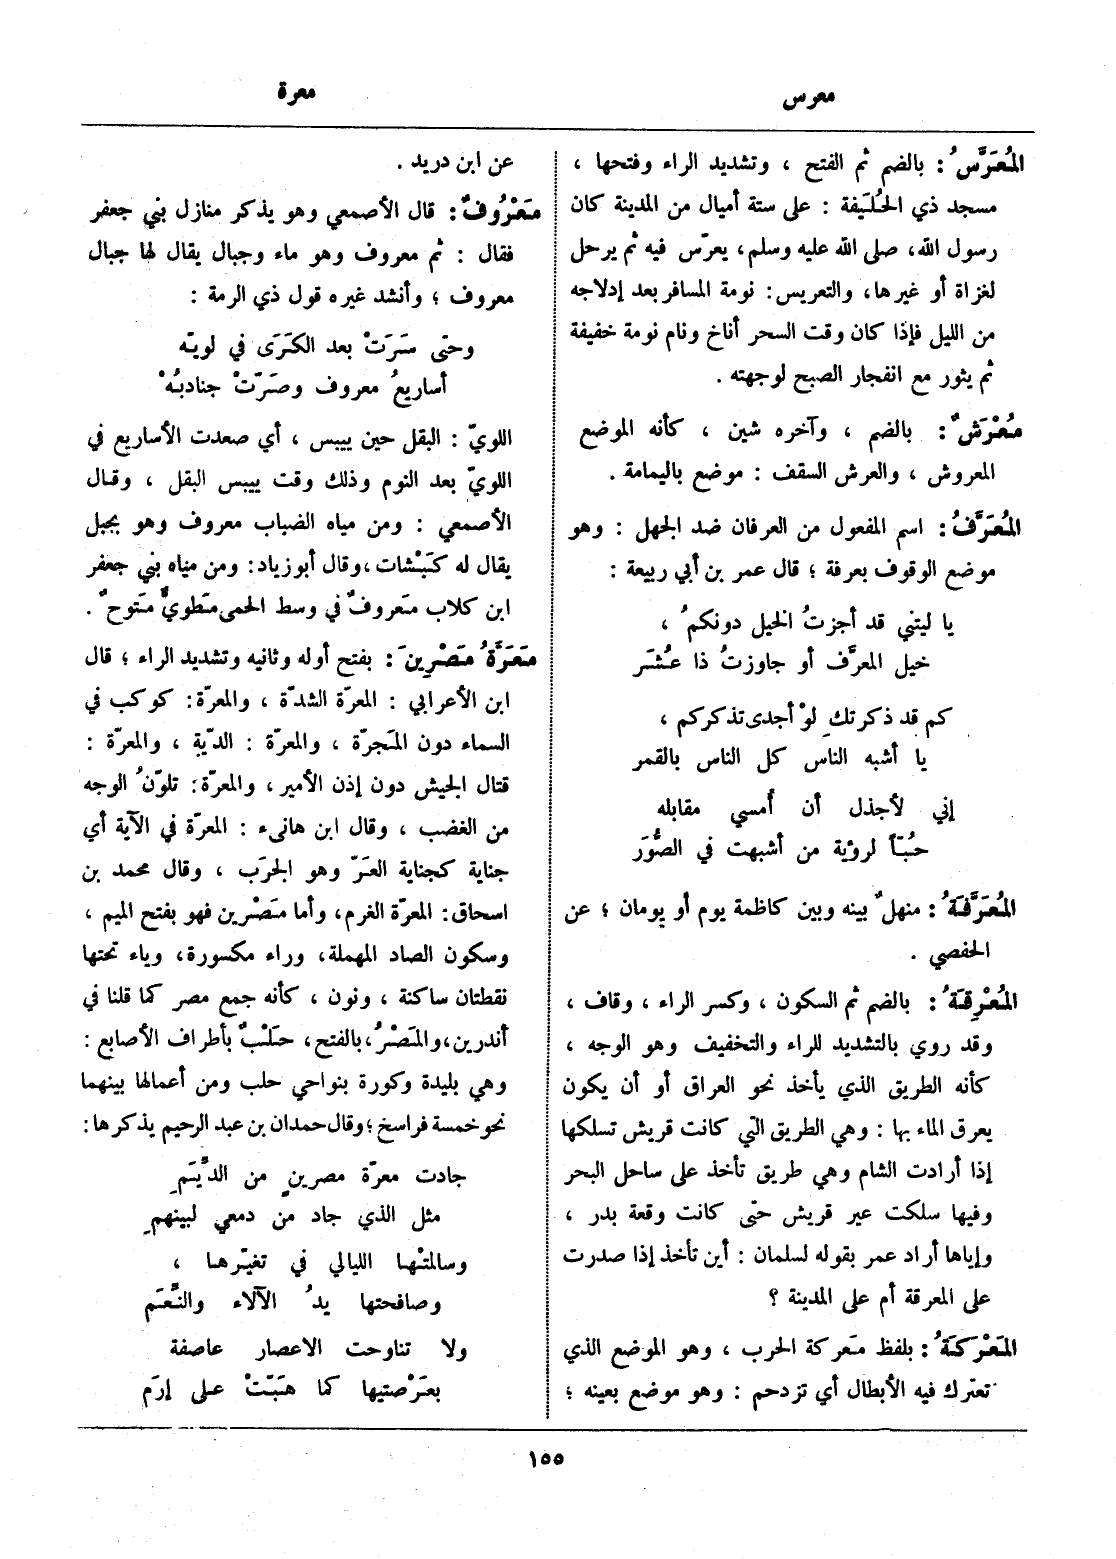 معرس
معرة
المُعَرَّسُ : بالضم ثم الفتح ، وتشديد الراء وفتحها ،
مسجد ذي الحُلَيفة : على ستة أميال من المدينة كان
رسول الله، صلى الله عليه وسلم، يعرّس فيه ثم يرحل
لغزاة أو غيرها، والتعريس: نومة المسافر بعد إدلاجه
من الليل فإذا كان وقت السحر أناخ ونام نومة خفيفة
ثم يثور مع انفجار الصبح لوجهته .
مُعْرَشٌ : بالضم ، وآخره شين ، كأنه الموضع
المعروش ، والعرش السقف : موضع باليمامة .
المُعَرَّفُ : اسم المفعول من العرفان ضد الجهل : وهو
موضع الوقوف بعرفة ؛ قال عمر بن أبي ربيعة :
يا ليتني قد أجزتُ الخيل دونكمُ ،
خيل المعرَّف أو جاوزتُ ذا عُشَر
كم قد ذكرتكِ لوْ أجدى تذكركم ،
يا أشبه الناس كل الناس بالقمر
إني لأجذل أن أُمسي مقابله
حُبّاً لرؤية من أشبهت في الصُّوَر
المُعَرَّفَةُ : منهلٌ بينه وبين كاظمة يوم أو يومان ؛ عن
الحفصي .
المُعْرِقَةُ : بالضم ثم السكون ، وكسر الراء ، وقاف ،
وقد روي بالتشديد للراء والتخفيف وهو الوجه ،
كأنه الطريق الذي يأخذ نحو العراق أو أن يكون
يعرق الماء بها : وهي الطريق التي كانت قريش تسلكها
إذا أرادت الشام وهي طريق تأخذ على ساحل البحر
وفيها سلكت عير قريش حتى كانت وقعة بدر ،
وإياها أراد عمر بقوله لسلمان : أين تأخذ إذا صدرت
على المعرقة أم على المدينة ؟
المَعْرَكَةُ : بلفظ مَعركة الحرب ، وهو الموضع الذي
تعترك فيه الأبطال أي تزدحم : وهو موضع بعينه ؛
عن ابن دريد .
مَعْرُوفٌ : قال الأصمعي وهو يذكر منازل بني جعفر
فقال : ثم معروف وهو ماء وجبال يقال لها جبال
معروف ؛ وأنشد غيره قول ذي الرمة :
وحتى سَرَتْ بعد الكَرَى في لويّه
أساريعُ معروف وصَرّتْ جنادبُهْ
اللويّ : البقل حين ييبس ، أي صعدت الأساريع في
اللويّ بعد النوم وذلك وقت ييبس البقل ، وقال
الأصمعي : ومن مياه الضباب معروف وهو بجبل
يقال له كَبَشات، وقال أبو زياد: ومن مياه بني جعفر
ابن كلاب مَعروفٌ في وسط الحمى مَطويٌّ مَتوحٌ .
مَعَرَّةُ مَصْرِينَ : بفتح أوله وثانيه وتشديد الراء ؛ قال
ابن الأعرابي : المعرّة الشدّة ، والمعرّة: كوكب في
السماء دون المَجرّة ، والمعرّة : الدّية ، والمعرّة :
قتال الجيش دون إذن الأمير، والمعرّة: تلوّنُ الوجه
من الغضب ، وقال ابن هانىء : المعرّة في الآية أي
جناية كجناية العَرّ وهو الجرَب ، وقال محمد بن
اسحاق: المعرّة الغرم، وأما مَصْرين فهو بفتح الميم ،
وسكون الصاد المهملة، وراء مكسورة، وياء تحتها
نقطتان ساكنة ، ونون ، كأنه جمع مصر كما قلنا في
أندرين، والمَصْرُ، بالفتح، حَلْبٌ بأطراف الأصابع :
وهي بليدة وكورة بنواحي حلب ومن أعمالها بينهما
نحو خمسة فراسخ ؛ وقال حمدان بن عبد الرحيم يذكرها:
جادت معرّة مصرين من الدِّيَمِ
مثل الذي جاد من دمعي لبينهمِ
وسالمتْها الليالي في تغيّرها ،
وصافحتها يدُ الآلاء والنِّعَم
ولا تناوحت الاعصار عاصفة
بعَرْصتيها كما هَبّتْ على إرَم
١٥٥